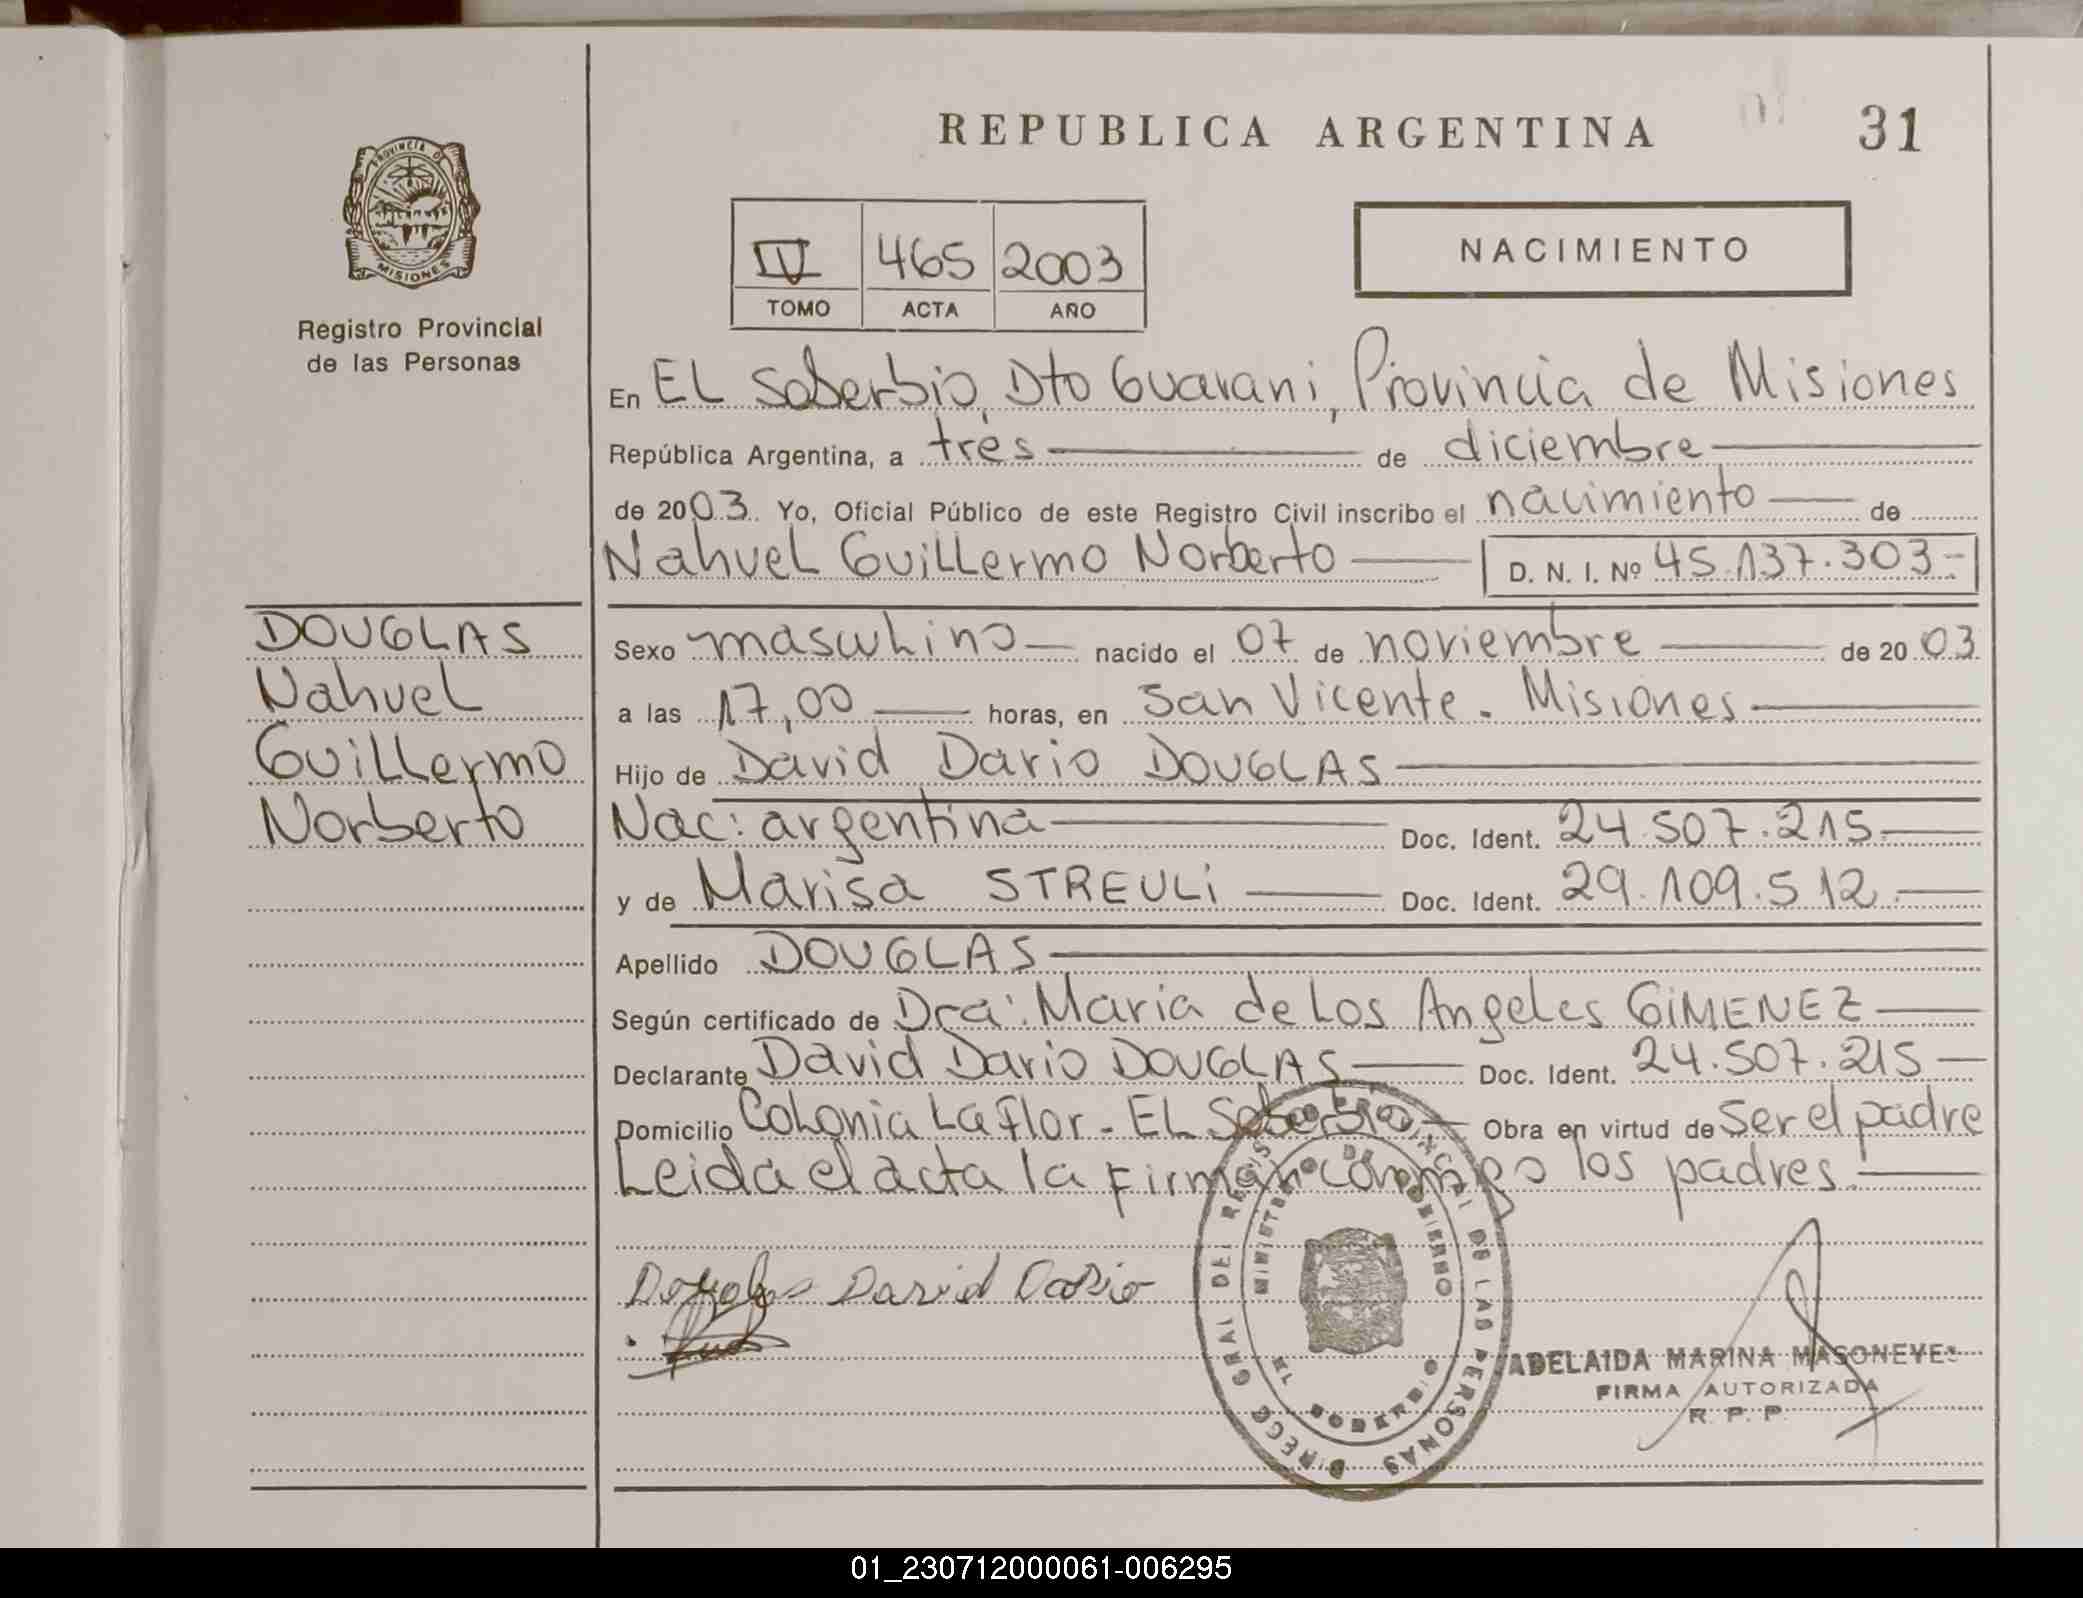 REPUBLICA ARGENTINA
31
PROVINCIA DE
MISIONES
Registro Provincial
de las Personas
IV 465 2003
TOMO ACTA AÑO
NACIMIENTO
En EL Soberbio, Dto Guarani, Provincia de Misiones
República Argentina, a tres de diciembre
de 2003. Yo, Oficial Público de este Registro Civil inscribo el nacimiento de
Nahuel Guillermo Norberto D. N. I. Nº 45.137.303-
DOUGLAS
Nahuel
Guillermo
Norberto
Sexo masculino nacido el 07 de noviembre de 2003
a las 17,00 horas, en San Vicente. Misiones
Hijo de David Dario DOUGLAS
Nac: argentina Doc. Ident. 24.507.215
y de Marisa STREULi Doc. Ident. 29.109.512.
Apellido DOUGLAS
Según certificado de Dra: Maria de Los Angeles GiMENEZ
Declarante David Dario DOUGLAS Doc. Ident. 24.507.215
Domicilio Colonia La Flor - EL Soberbio Obra en virtud de Ser el padre
Leida el acta la firman conmigo los padres.
Douglas David Dario
DIRECC GRAL DEL REGISTRO PROVINCIAL DE LAS PERSONAS
MINISTERIO DE GOBIERNO
EL SOBERBIO
ADELAIDA MARINA MASONEVES
FIRMA AUTORIZADA
R. P. P.
01_230712000061-006295